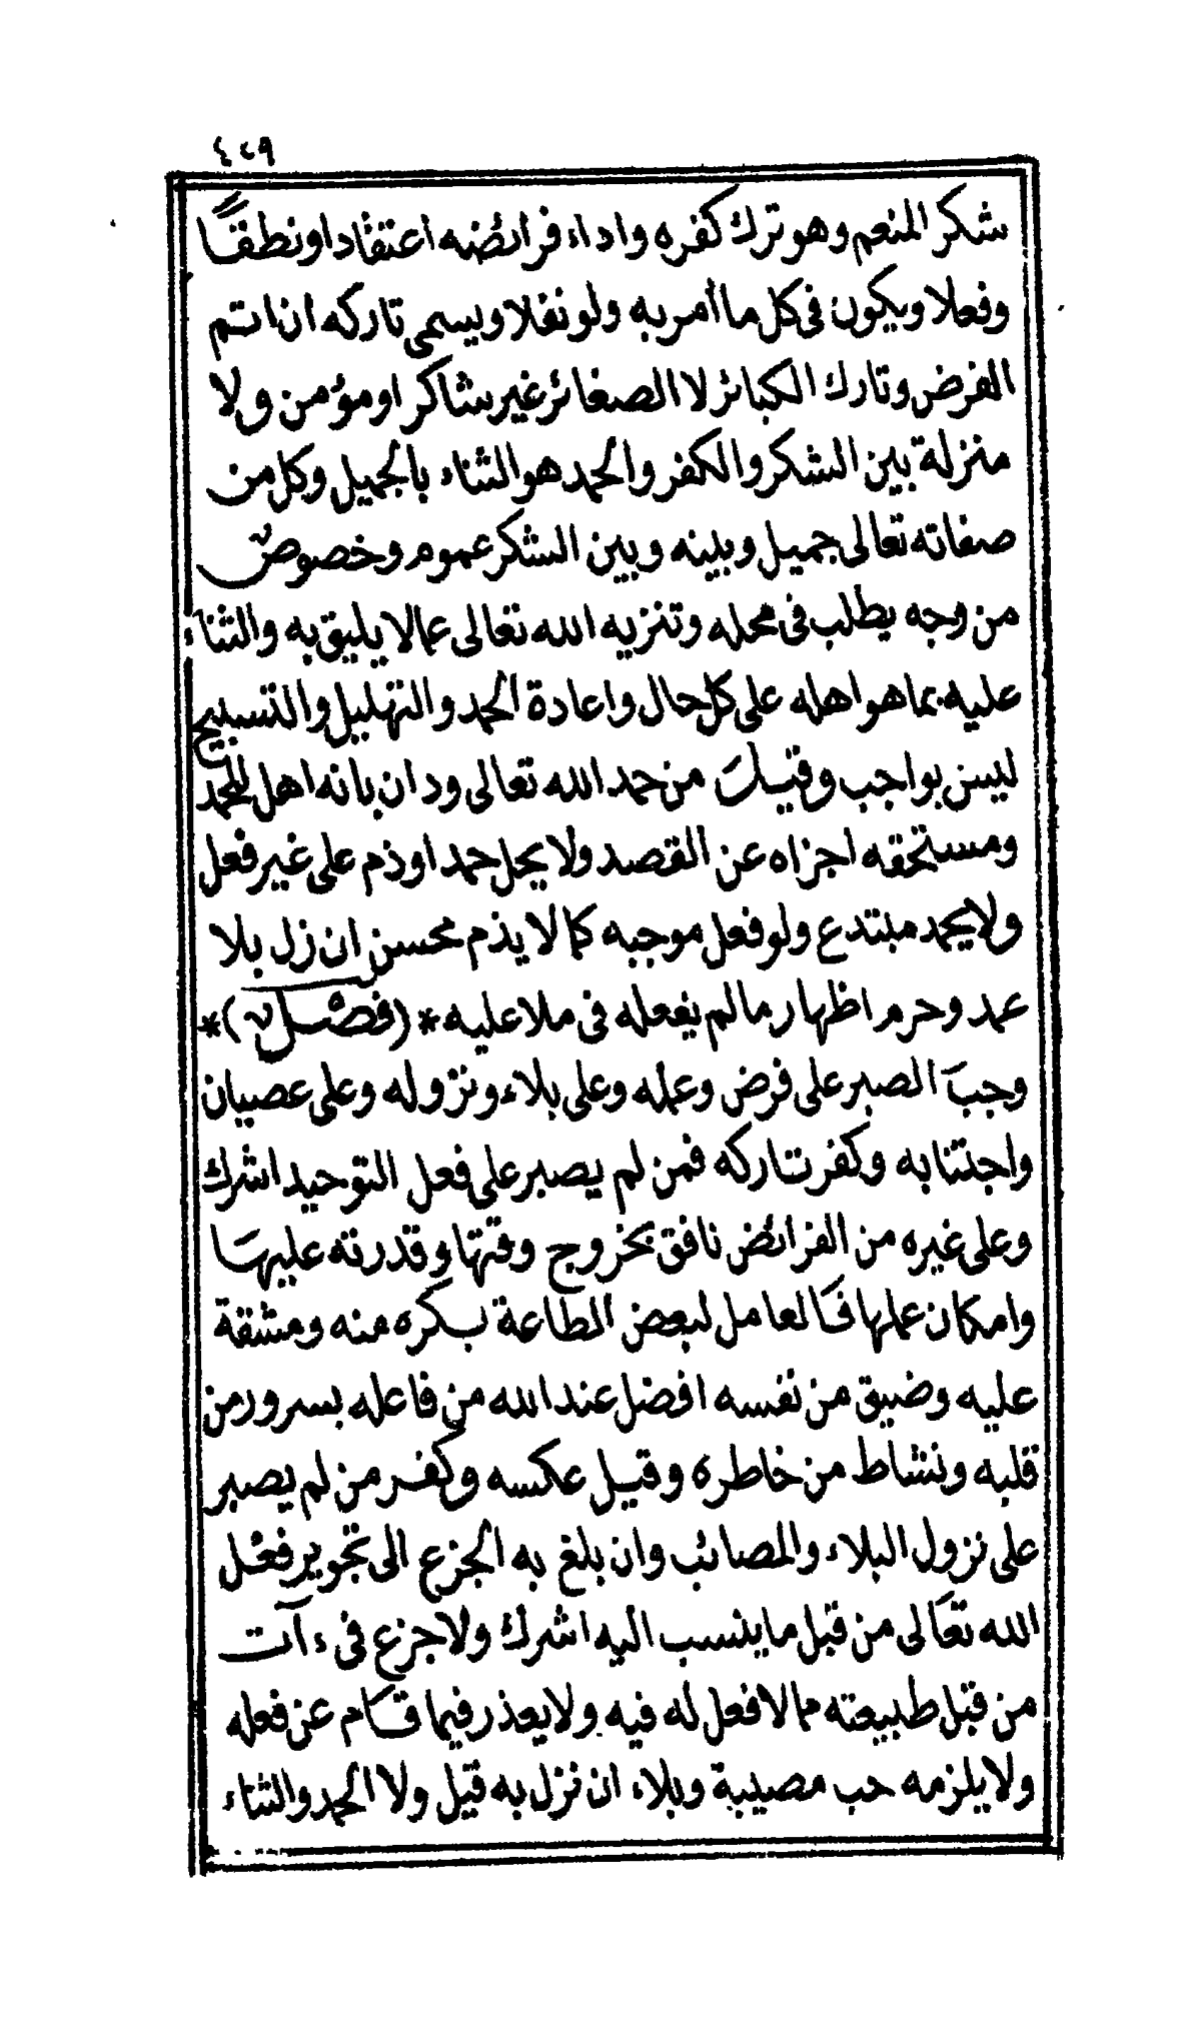 ٤٢٩
شكر المنعم وهو ترك كفره واداء فرائضه اعتقادا ونطقا
وفعلا ويكون فى كل ما أمر به ولو نفلا ويسمى تاركه ان اتم
الفرض وتارك الكبائر لا الصغائر غير شاكر او مؤمن ولا
منزلة بين الشكر والكفر والحمد هو الثناء بالجميل وكل من
صفاته تعالى جميل وبينه وبين الشكر عموم وخصوص
من وجه يطلب فى محله وتنزيه الله تعالى عما لا يليق به والثناء
عليه بما هو اهله على كل حال واعادة الحمد والتهليل والتسبيح
ليس بواجب وقيل من حمد الله تعالى ودان بانه اهل للحمد
ومستحقه اجزاه عن القصد ولا يحل حمد او ذم على غير فعل
ولا يحمد مبتدع ولو فعل موجبه كما لا يذم محسن ان زل بلا
عمد وحرم اظهار ما لم يفعله فى ملا عليه * (فصل) *
وجب الصبر على فرض وعمله وعلى بلاء ونزوله وعلى عصيان
واجتنابه وكفر تاركه فمن لم يصبر على فعل التوحيد اشرك
وعلى غيره من الفرائض نافق بخروج وقتها وقدرته عليها
وامكان عملها فالعامل لبعض الطاعة بكره منه ومشقة
عليه وضيق من نفسه افضل عند الله من فاعله بسرور من
قلبه ونشاط من خاطره وقيل عكسه وكفر من لم يصبر
على نزول البلاء والمصائب وان بلغ به الجزع الى تجوير فعل
الله تعالى من قبل ما ينسب اليه اشرك ولا جزع فى ءات
من قبل طبيعته مما لا فعل له فيه ولا يعذر فيما قام عن فعله
ولا يلزمه حب مصيبة وبلاء ان نزل به قيل ولا الحمد والثناء